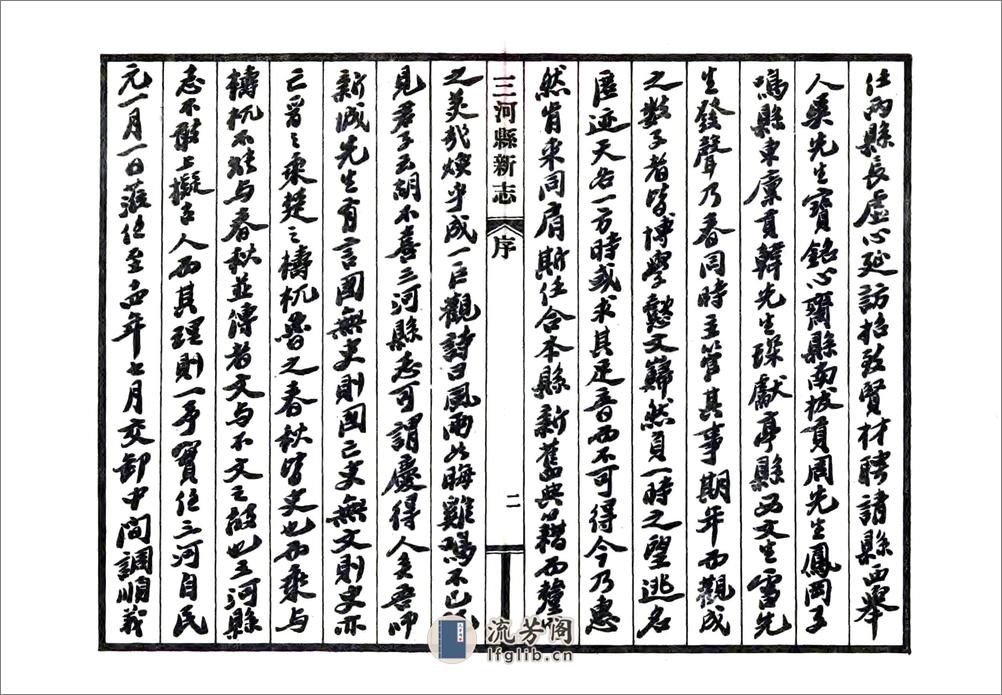 任兩縣長虛心延訪招致賢材聘諸縣西舉
人吳先生寶銘心齋縣南拔貢周先生鳳岡子
鳴縣東廩貢韓先生琛獻亭縣西文生雷先
生發聲乃春同時主管其事期年而觀成
之數子者皆博學懿文巋然負一時之望逃名
匿迹天各一方時或求其足音而不可得今乃惠
然肯來同肩斯任合本縣新舊典籍而釐
三河縣新志
序
二
之美哉煥乎成一巨觀詩曰風雨如晦雞鳴不已既
見君子云胡不喜三河縣志可謂慶得人矣吾師
新城先生有言國無史則國亡史無文則史亦
亡晉之乘楚之檮杌魯之春秋皆史也而乘與
檮杌不能与春秋並傳者文与不文之故也三河縣
志不敢上擬古人而其理則一予實任三河自民
元一月一日蒞任至四年七月交卸中間調順義
流芳閣
lfglib.cn